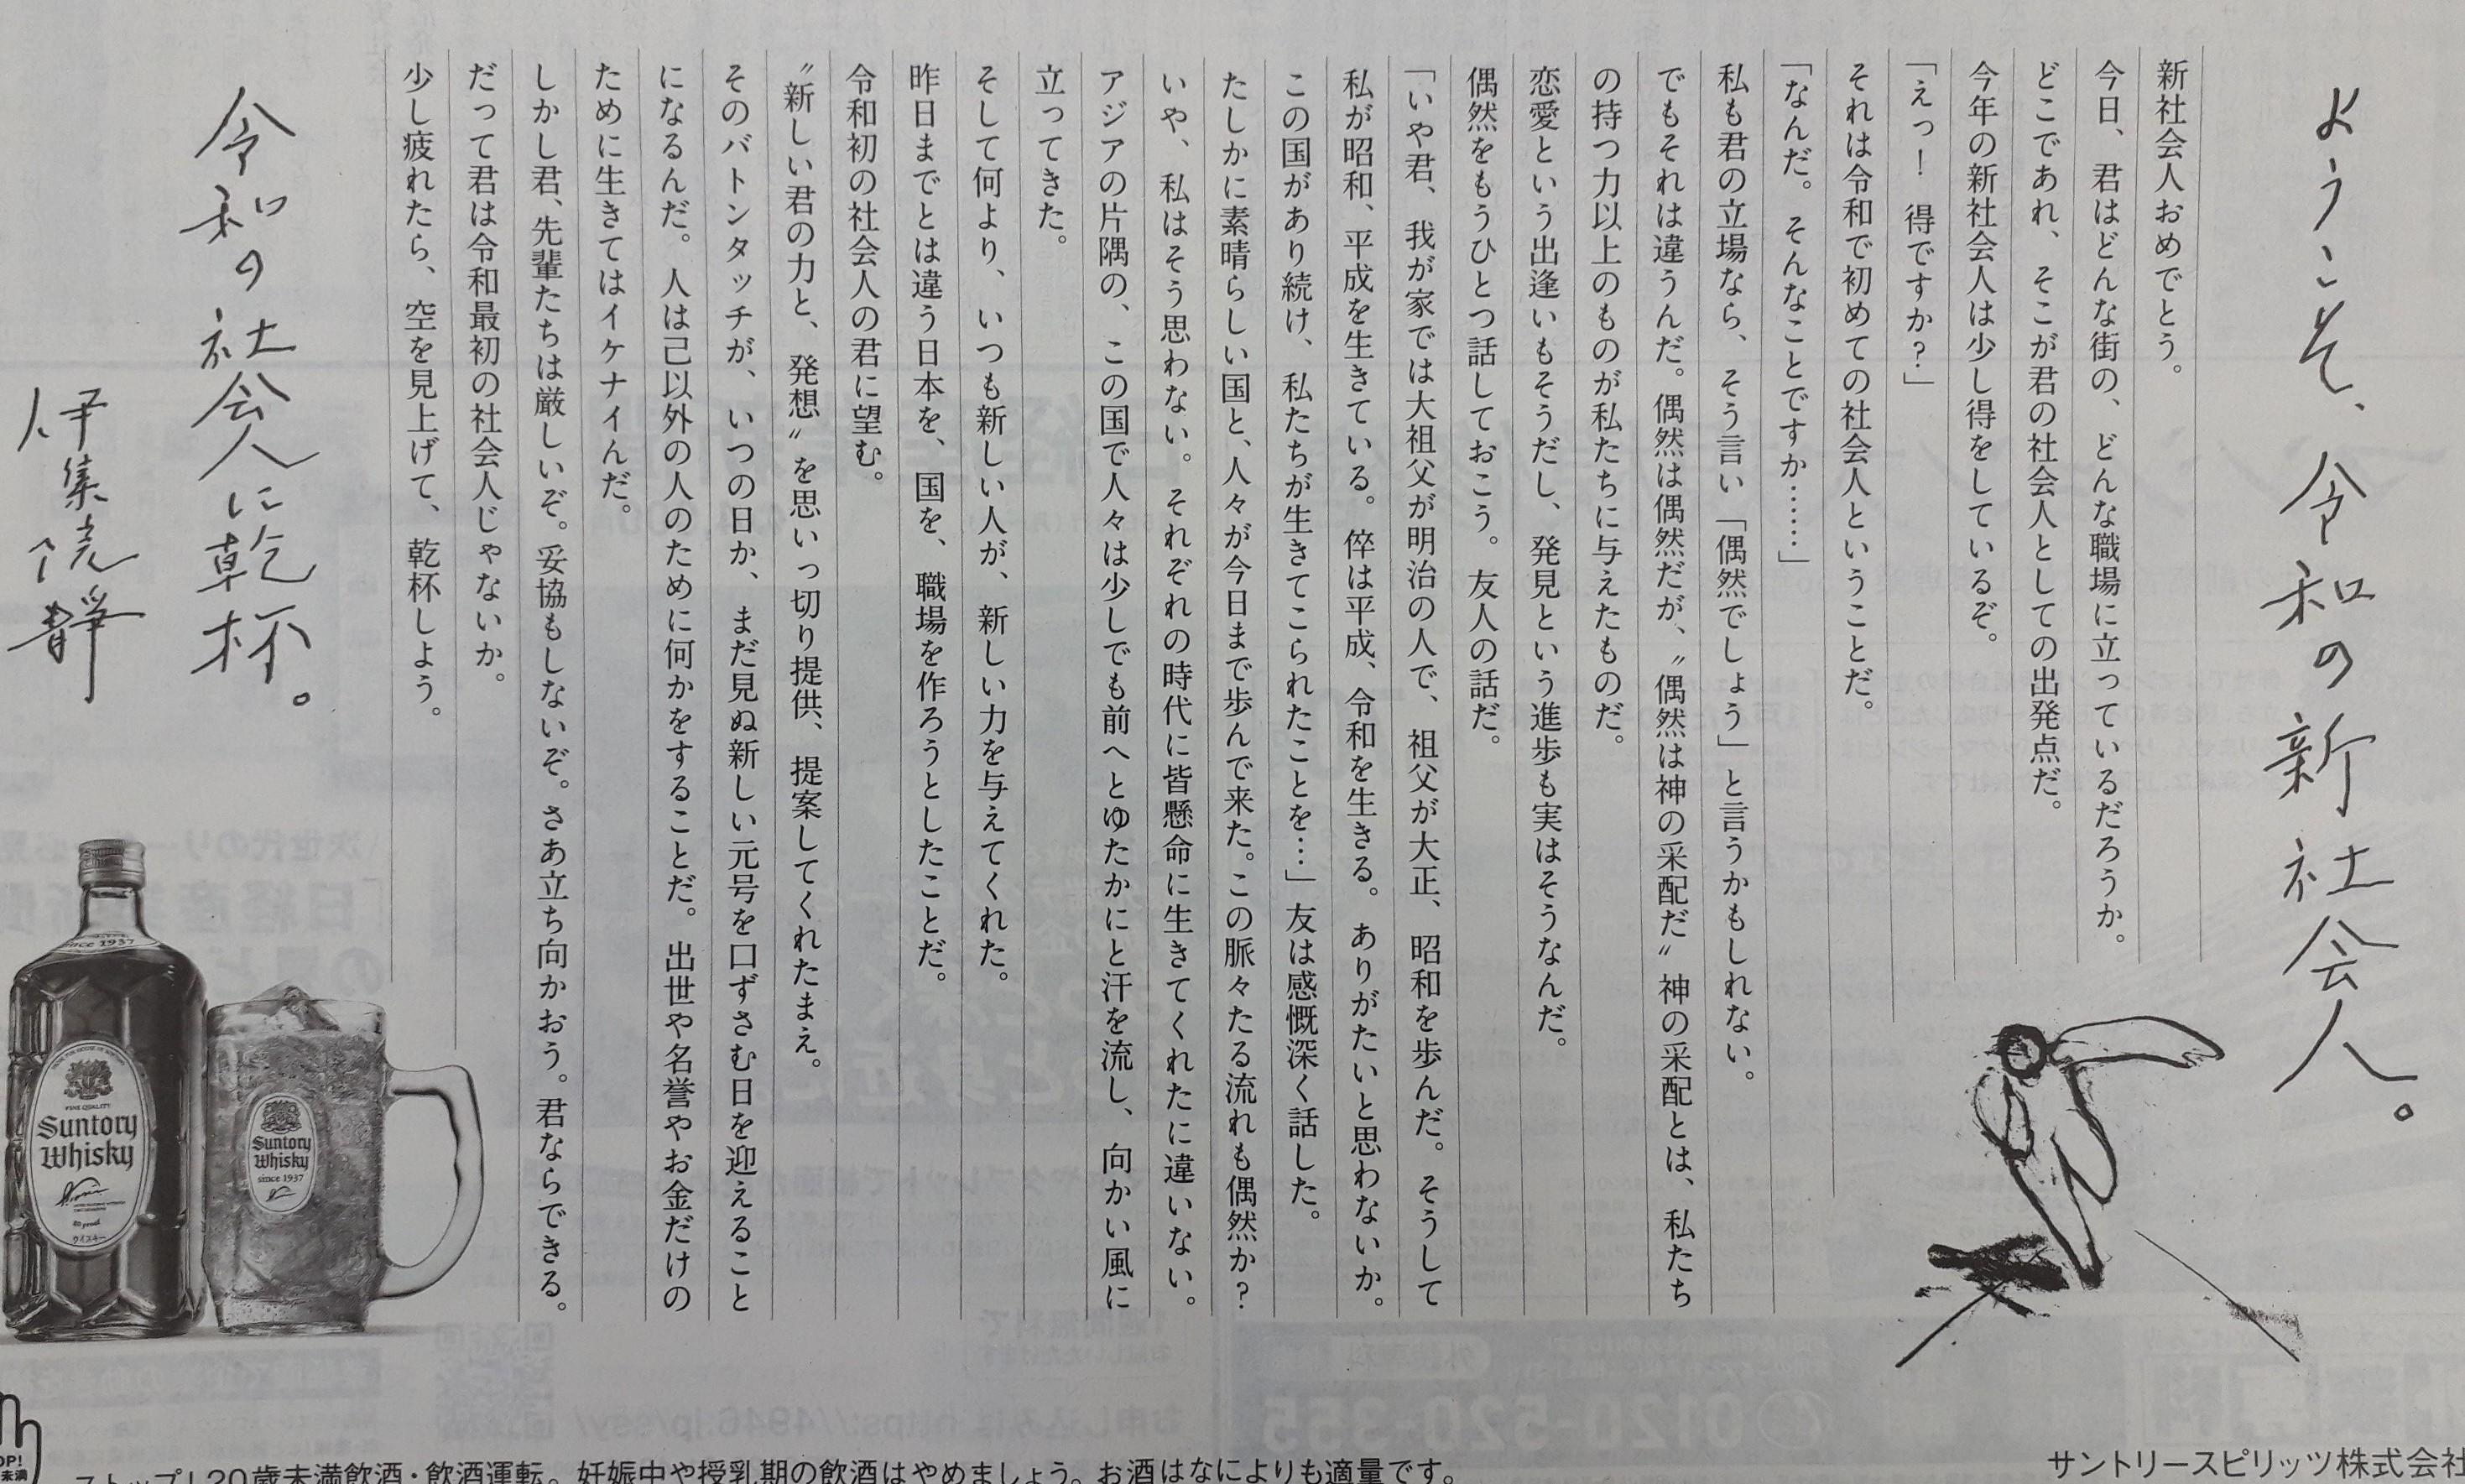 ようこそ、令和の新社会人。
新社会人おめでとう。
今日、君はどんな街の、どんな職場に立っているだろうか。
どこであれ、そこが君の社会人としての出発点だ。
今年の新社会人は少し得をしているぞ。
「えっ！　得ですか？」
それは令和で初めての社会人ということだ。
「なんだ。そんなことですか……」
私も君の立場なら、そう言い「偶然でしょう」と言うかもしれない。
でもそれは違うんだ。偶然は偶然だが、〝偶然は神の采配だ〟神の采配とは、私たち
の持つ力以上のものが私たちに与えたものだ。
恋愛という出逢いもそうだし、発見という進歩も実はそうなんだ。
偶然をもうひとつ話しておこう。友人の話だ。
「いや君、我が家では大祖父が明治の人で、祖父が大正、昭和を歩んだ。そうして
私が昭和、平成を生きている。倅は平成、令和を生きる。ありがたいと思わないか。
この国があり続け、私たちが生きてこられたことを…」友は感慨深く話した。
たしかに素晴らしい国と、人々が今日まで歩んで来た。この脈々たる流れも偶然か？
いや、私はそう思わない。それぞれの時代に皆懸命に生きてくれたに違いない。
アジアの片隅の、この国で人々は少しでも前へとゆたかにと汗を流し、向かい風に
立ってきた。
そして何より、いつも新しい人が、新しい力を与えてくれた。
昨日までとは違う日本を、国を、職場を作ろうとしたことだ。
令和初の社会人の君に望む。
〝新しい君の力と、発想〟を思いっ切り提供、提案してくれたまえ。
そのバトンタッチが、いつの日か、まだ見ぬ新しい元号を口ずさむ日を迎えること
になるんだ。人は己以外の人のために何かをすることだ。出世や名誉やお金だけの
ために生きてはイケナイんだ。
しかし君、先輩たちは厳しいぞ。妥協もしないぞ。さあ立ち向かおう。君ならできる。
だって君は令和最初の社会人じゃないか。
少し疲れたら、空を見上げて、乾杯しよう。
令和の社会人に乾杯。
伊集院静
since 1937
FINE QUALITY
Suntory
Whisky
ウイスキー
Suntory
Whisky
since 1937
サントリースピリッツ株式会社
ストップ！20歳未満飲酒・飲酒運転。妊娠中や授乳期の飲酒はやめましょう。お酒はなによりも適量です。